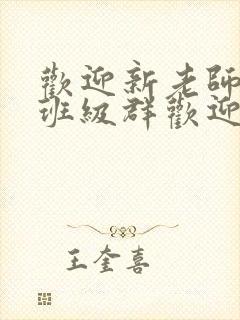 歡迎新老師
班級群歡迎
王奎喜